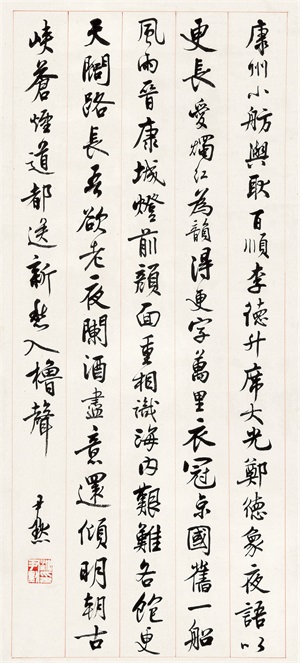 康州小舫與耿百順李德升席大光鄭德象夜語以
更長愛燭紅為韻得更字萬里衣冠京國舊一船
風雨晉康城燈前顏面重相識海內艱難各飽更
天闊路長吾欲老夜闌酒盡意還傾明朝古
峽蒼煙道都送新愁入櫓聲
尹默